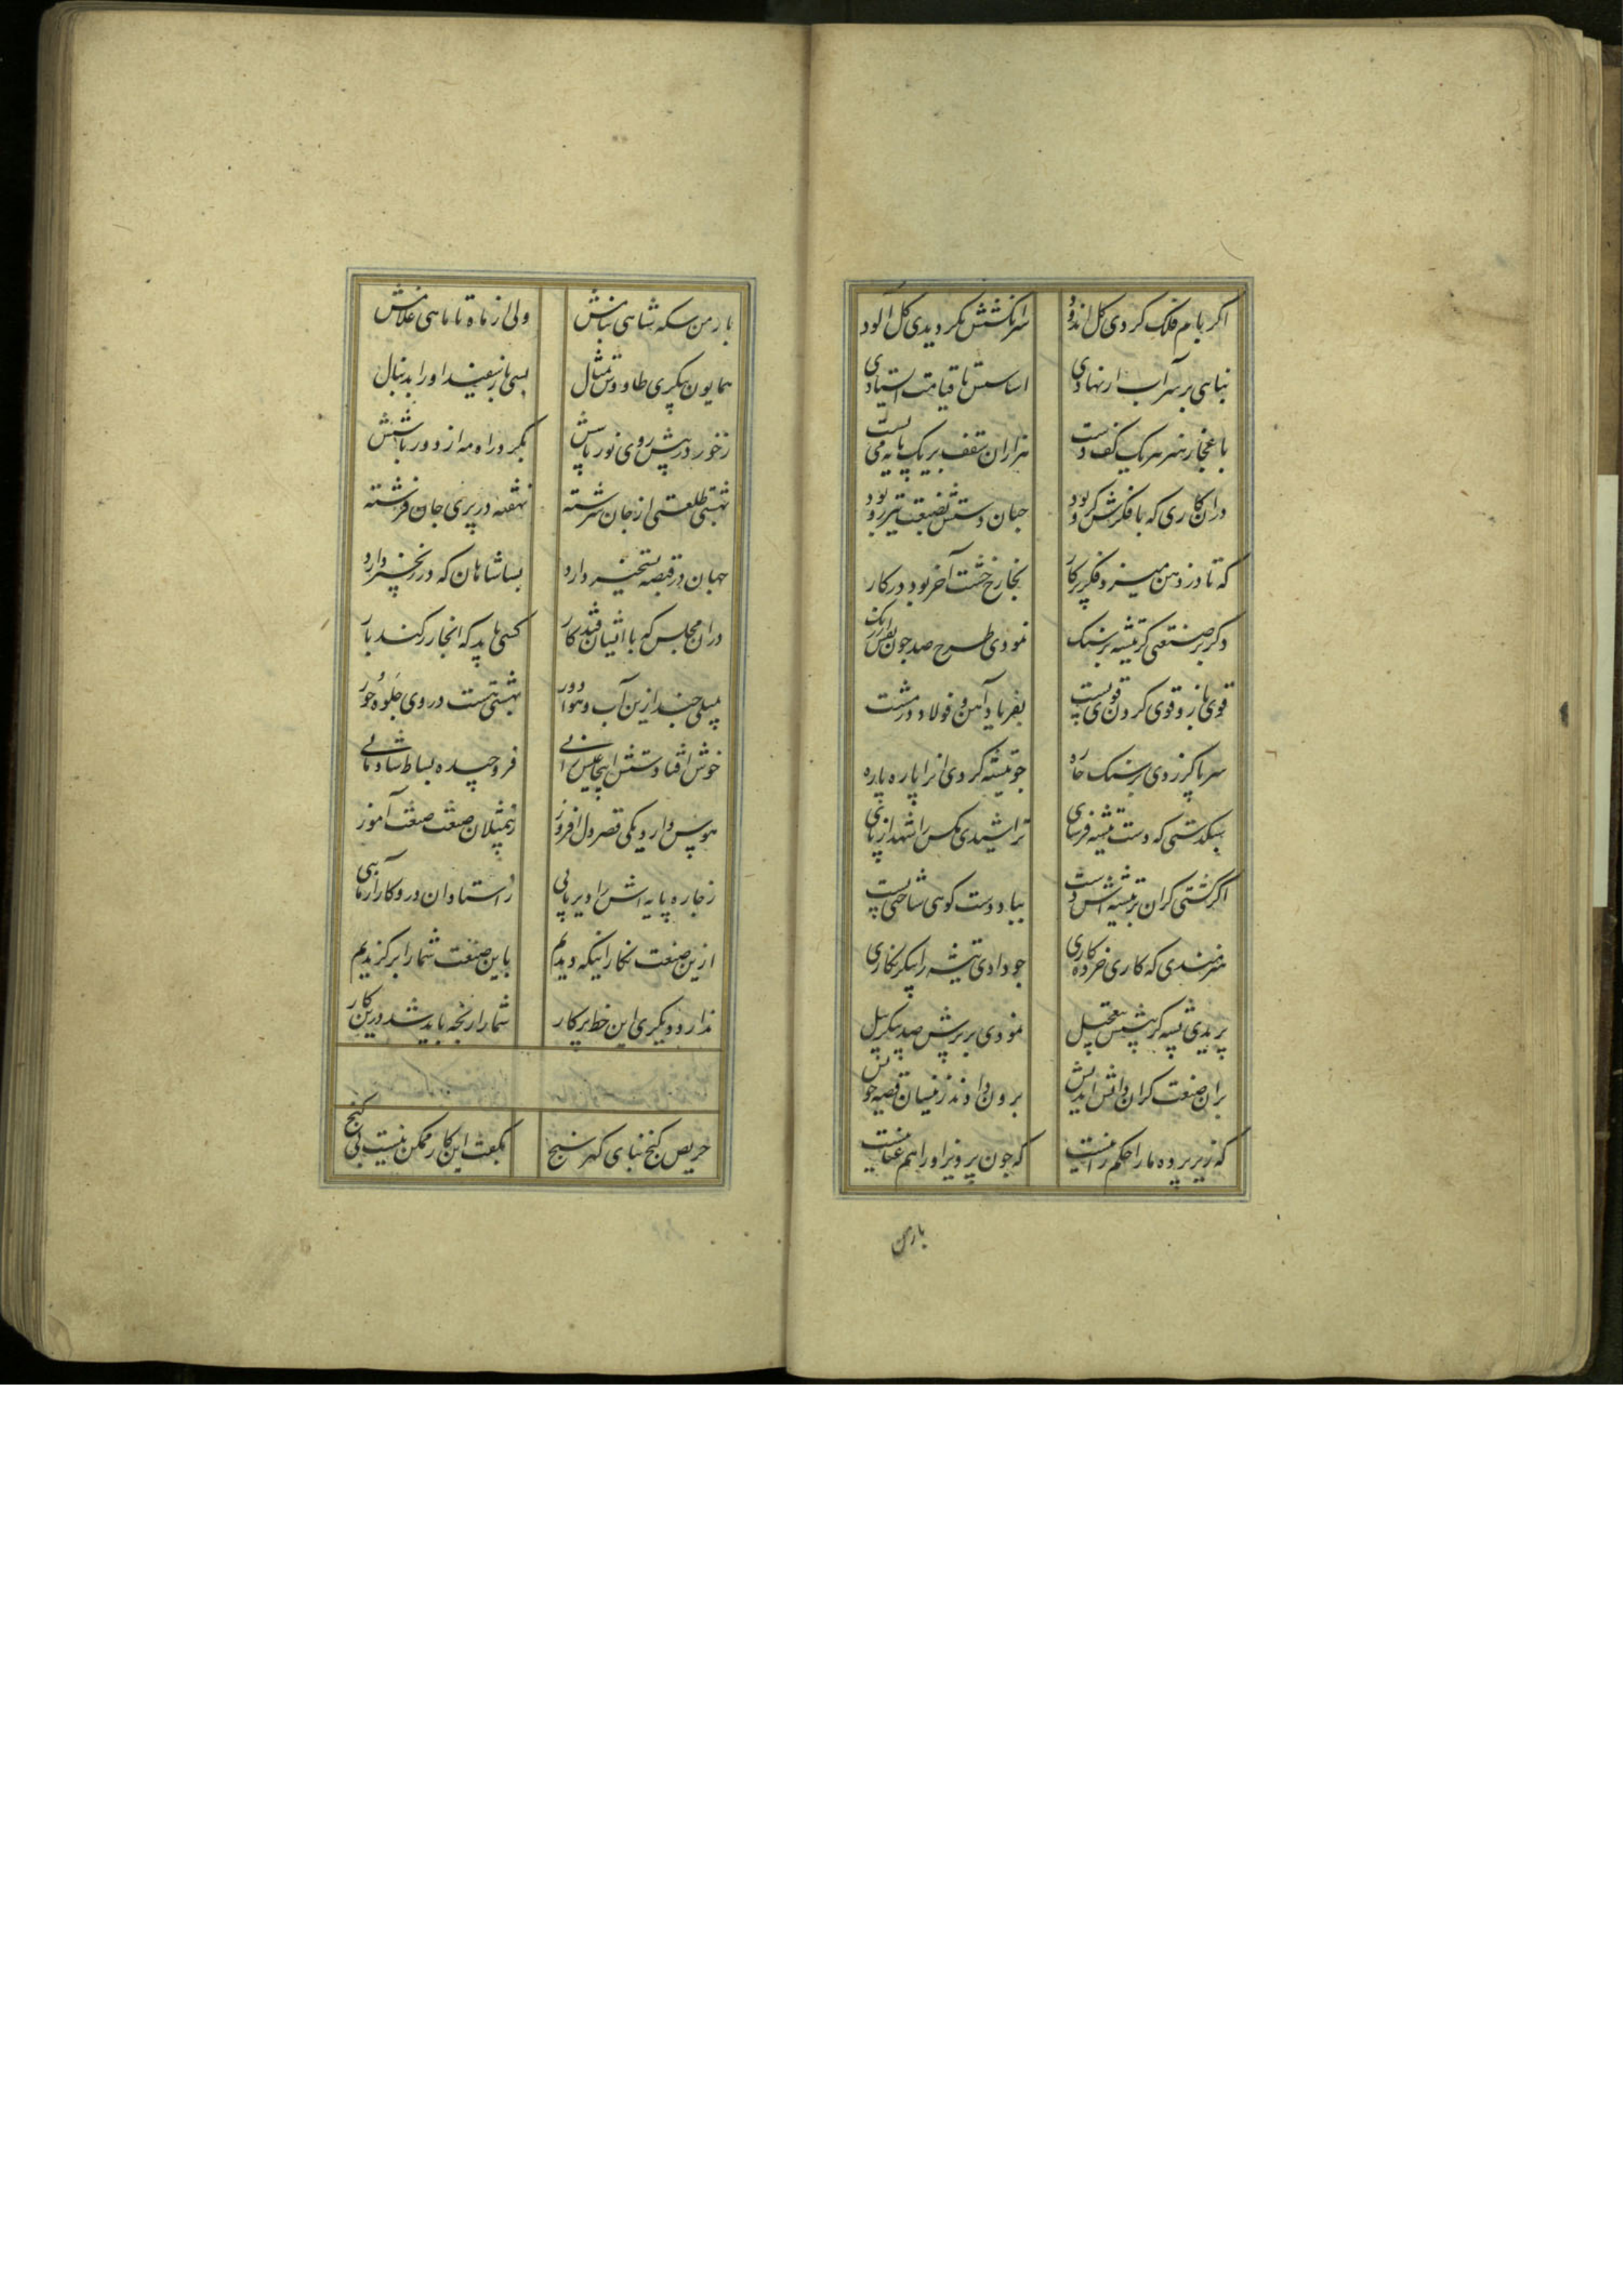 اکر بام فلک کردی کل اندود سرانکشتش نکردیدی کل آلود
بنایی بر سر آب ار نهادی اساسش تا قیامت ایستادی
باعجاز هنر هر یک کف دست هزاران سقف بر یک پایه می بست
دران کاری که با فکرش کرو بود چنان دستش بصنعت تیزرو بود
که تا در ذهن میزد فکر پرکار بخارج خشت آخر بود در کار
دکر پر صنعتی کز تیشه بر سنک نمودی طرح صد چون نقش ارژنک
قوی بازو قوی کردن قوی پشت بفریاد آهن و فولاد در مشت
سر پا کر زدی بر سنک خاره چو تیشه کردی انرا پاره پاره
سبکدستی که دست تیشه فرسای تراشیدی مکس را شهد از پای
اکر کشتی کران بر تیشه اش دست بباد دست کوهی ساختی پست
هنرمندی که کاری خرده کاری چو دادی تیشه را پیکر نکاری
پریدی پشه کر پیشش بتعجیل نمودی بر پرش صد پیکر پیل
بران صنعت کران دانش اندیش برون دادند زنیسان قصه خویش
که زیر پرده ما را حکم رانیست که چون پرویز او را هم عنانیست
بارمن
بارمن سکه شاهی بنامش ولی از ماه تا ماهی غلامش
همایون پیکری طاووس تمثال بسی باز سفیند او را بدنبال
ز خور در پیش روی نور پاشش بکرد راه مه از دور باشش
بهشتی طلعتی از جان سرشته نهفته در پری جان فرشته
جهان در قبضه تسخیر دارد بسا شاهان که در زنجیر دارد
دران مجلس که با ایشان فتد کار کسی باید که انجا زر کند بار
بمیلی چند ازین آب و هوا دور بهشتی هست در وی جلوه حور
خوش افتادستش اینجا عیش رانی فرو چیده بساط شادمانی
هوس دارد یکی قصر دل افروز ز تمثیلات صنعت صنعت آموز
ز خاره پایه اش را دیر پایی ز استادان درو کار آزمایی
ازین صنعت نکارانیکه دیدیم باین صنعت شما را برکزیدیم
ندارد دیکری این خط پرکار شما را رنجه باید شد درین کار
حریص کنج بنای کهر سنج بکفت این کار ممکن نیست بی کنج